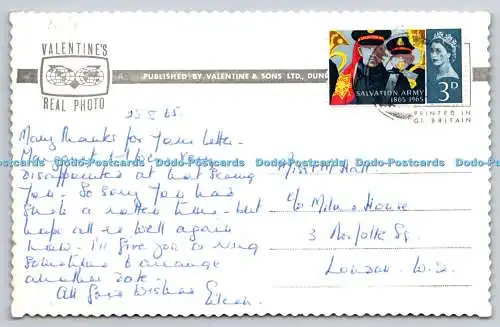 VALENTINE'S
REAL PHOTO
PUBLISHED BY VALENTINE & SONS LTD., DUN
SALVATION ARMY
1865 1965
3D
PRINTED IN
GT. BRITAIN
65
Many thanks for your letter.
disappointed at not seeing
you. So sorry you had
such a rotten time - but
hope all is well again
now. I'll give you a ring
sometime to arrange
another date.
All Good Wishes
Eileen.
Miss M Hall
c/o Milne House
3 Norfolk Sq.
London. W.2.
Dodo-Postcards Dodo-Postcards Dodo-Postcards Dodo-Postcards Dodo-Postcards